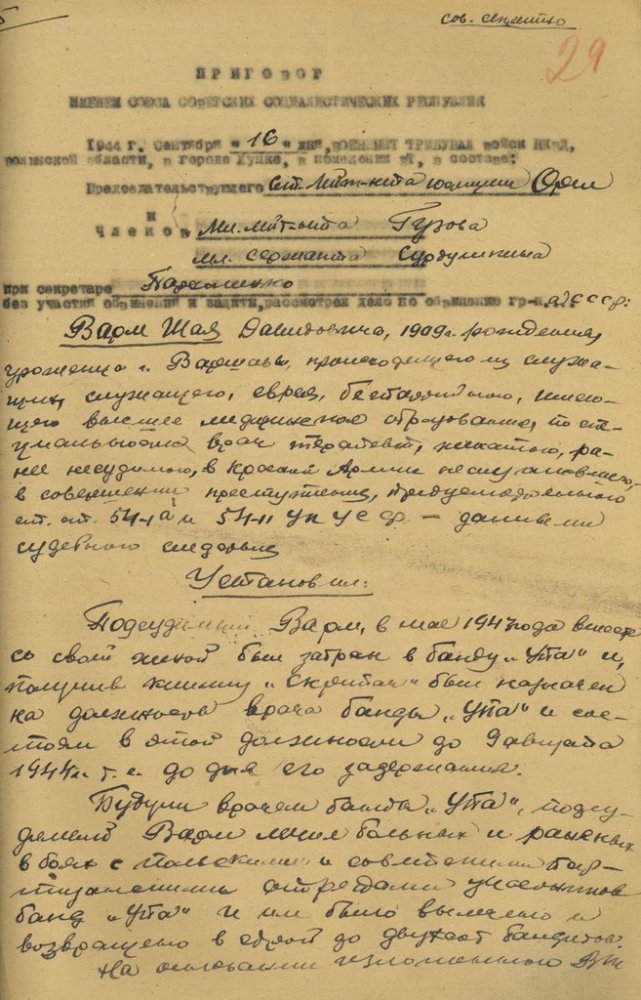 5
сов. секретно
29
ПРИГОВОР
ИМЕНЕМ СОЮЗА СОВЕТСКИХ СОЦИАЛИСТИЧЕСКИХ РЕСПУБЛИК
1944 г. Сентября "16" дня, ВОЕННЫЙ ТРИБУНАЛ войск НКВД,
волынской области, в городе Луцке, в помещении ВТ, в составе:
Председательствующего ст. лейт-нта юстиции Орел
и
Членов мл. лейт-нта Гузова
мл. сержанта
при секретаре
без участия обвинения и защиты, рассмотрел дело по обвинению гр-на СССР:
Варм Шая Давидовича, 1909 г. рождения,
уроженца г. Варшавы, происходящего из служа-
щих, служащего, еврея, беспартийного, имею-
щего высшее медицинское образование, по спе-
циальности врач терапевт, женатого, ра-
нее несудимого, в Красной Армии не
в совершении преступления, предусмотренного
ст. ст. 54-1а и 54-11 УК УССР – данными
судебного следствия
Установил:
Подсудимый Варм, в мае 1943 года вместе
со своей женой был забран в банду "УПА" и,
получив кличку "Скрипач" был назначен
на должность врача банды "УПА" и сос-
тоял в этой должности до 9 августа
1944 г. т. е. до дня его задержания.
Будучи врачем банды "УПА", подсу-
димый Варм лечил больных и раненых
в боях с польскими и советскими пар-
тизанскими отрядами участников
банд "УПА" и им было вылечено и
возвращено в строй до двухсот бандитов.
На основании изложенного ВТ